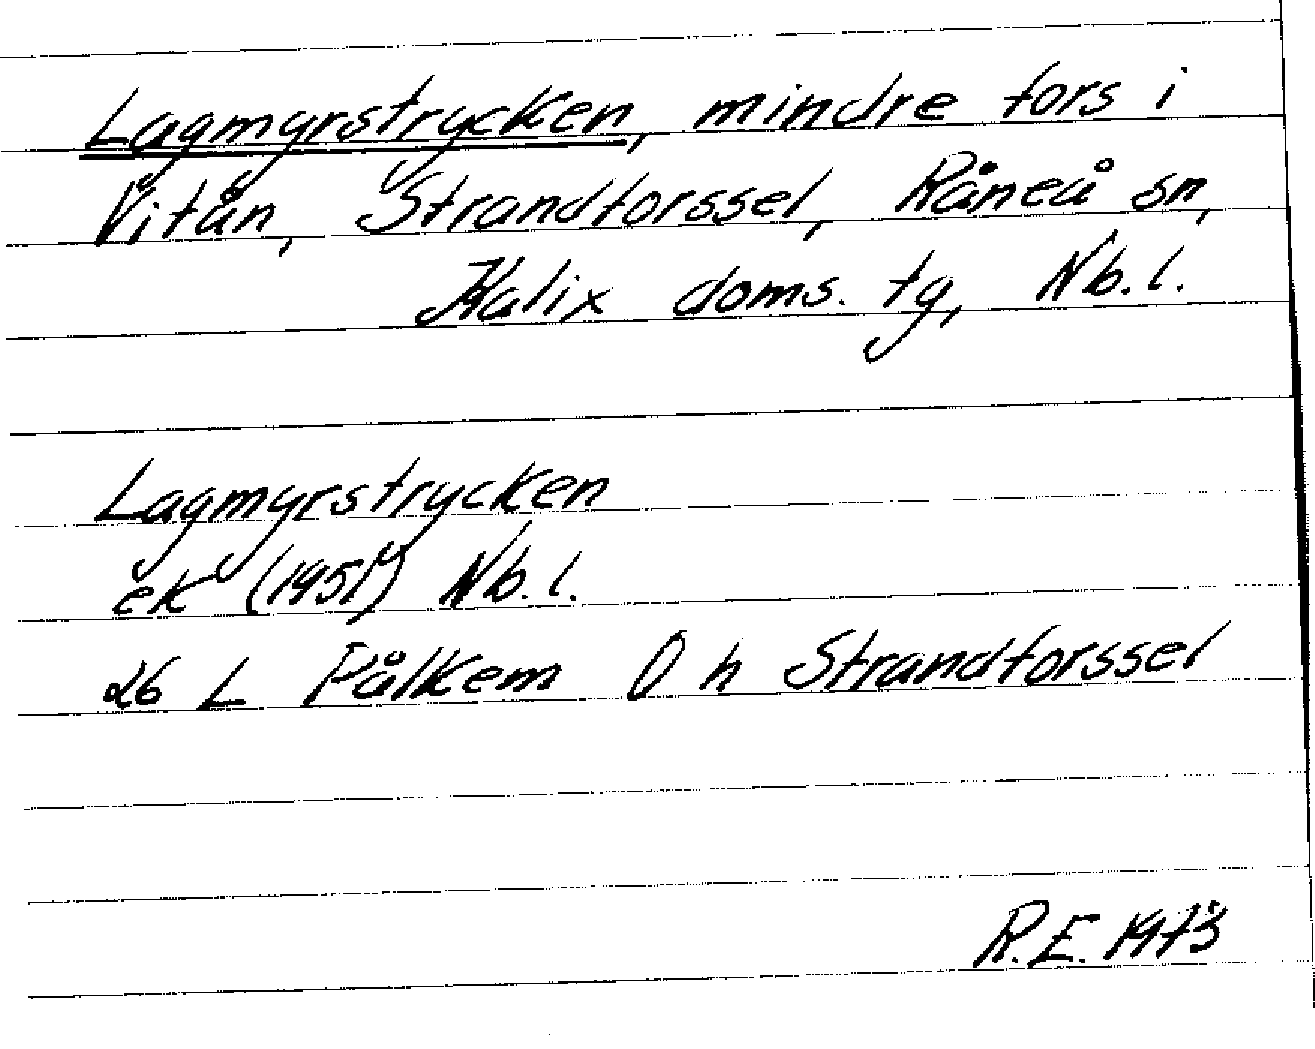 Lagmyrstrycken, mindre fors i
Vitån, Strandforssel, Råneå sn,
Kalix doms. tg, Nb.l.
Lagmyrstrycken
ek (1951) Nb.l.
26 L Pålkem O h Strandforssel
R.E. 1973